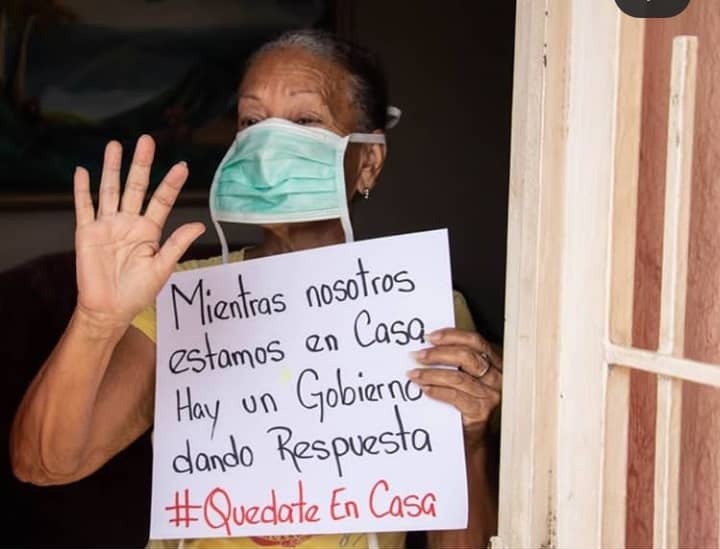 Mientras nosotros
estamos en Casa
Hay un Gobierno
dando Respuesta
#Quedate En Casa